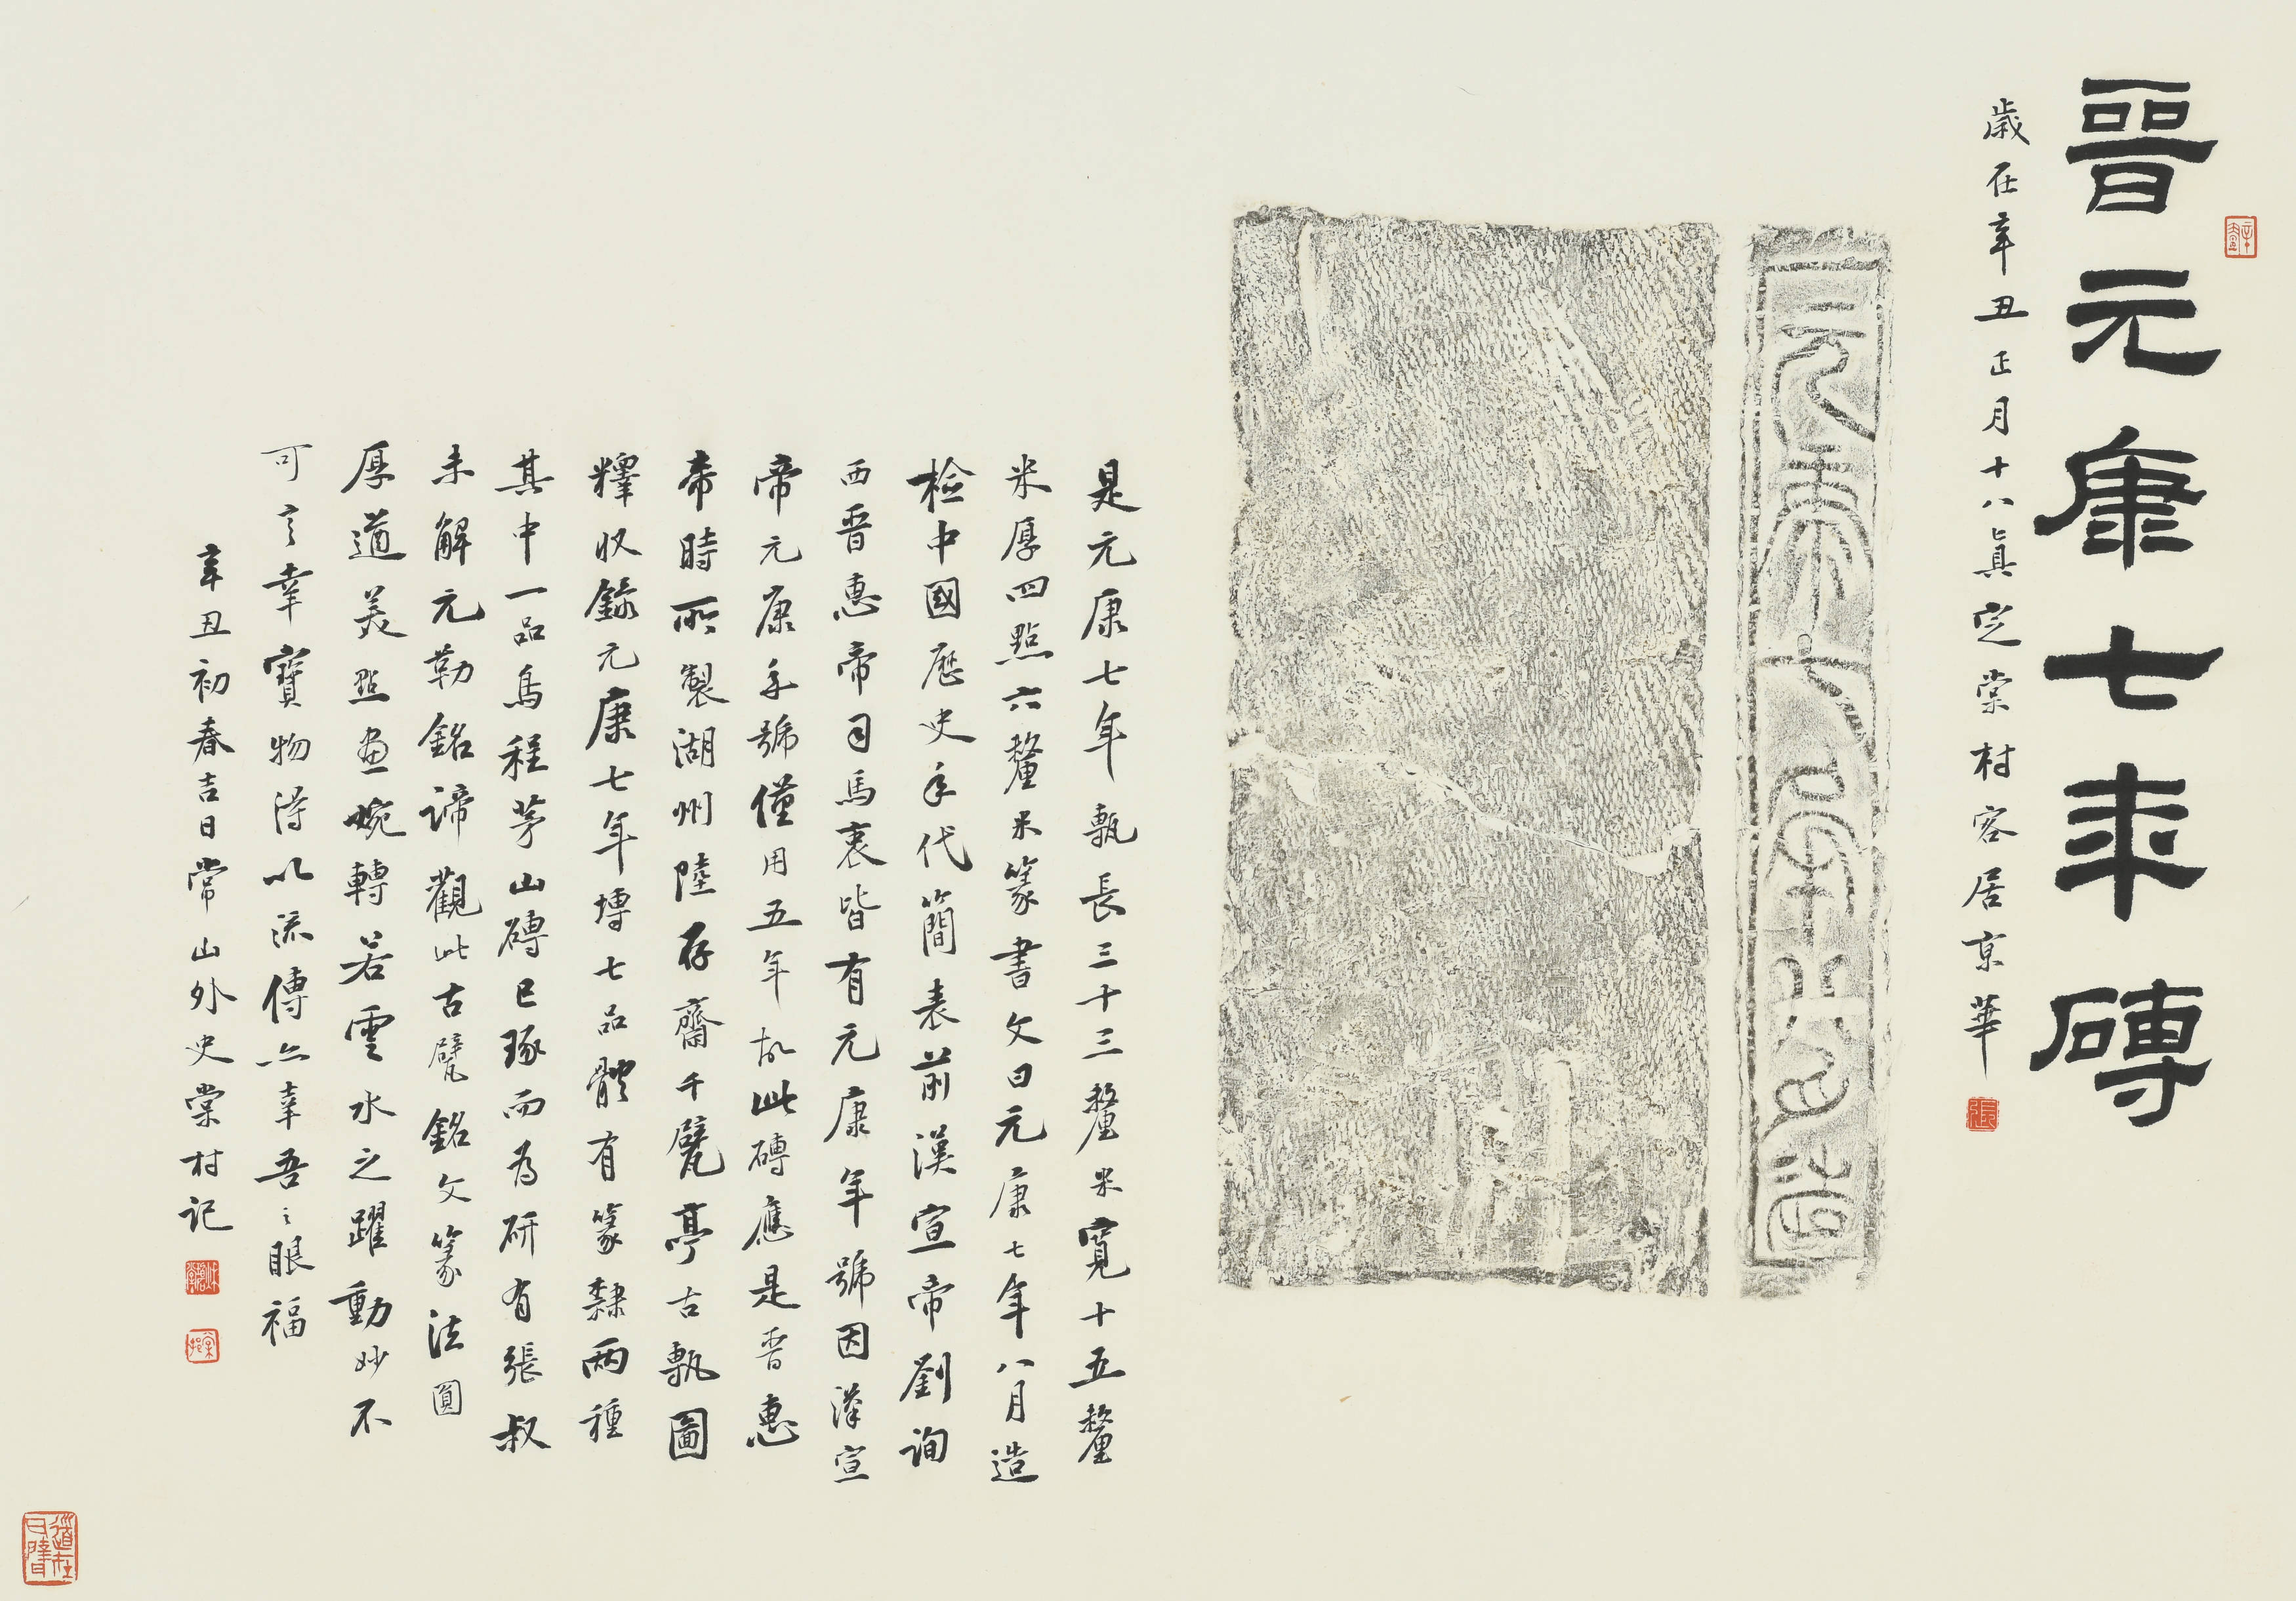 晉元康七年磚
歲在辛丑正月十八真定棠村客居京華
元康七年八月造
是元康七年甎長三十三釐米寬十五釐
米厚四點六釐米篆書文曰元康七年八月造
檢中國歷史年代簡表前漢宣帝劉詢
西晉惠帝司馬衷皆有元康年號因漢宣
帝元康年號僅用五年故此磚應是晉惠
帝時所製湖州陸存齋千甓亭古甎圖
釋收錄元康七年塼七品體有篆隸兩種
其中一品烏程茅山磚已琢而為研有張叔
未解元勒銘諦觀此古甓銘文篆法圓
厚遒美點畫婉轉若雲水之躍動妙不
可言幸寶物得以流傳亦幸吾之眼福
辛丑初春吉日常山外史棠村記
張
棠村